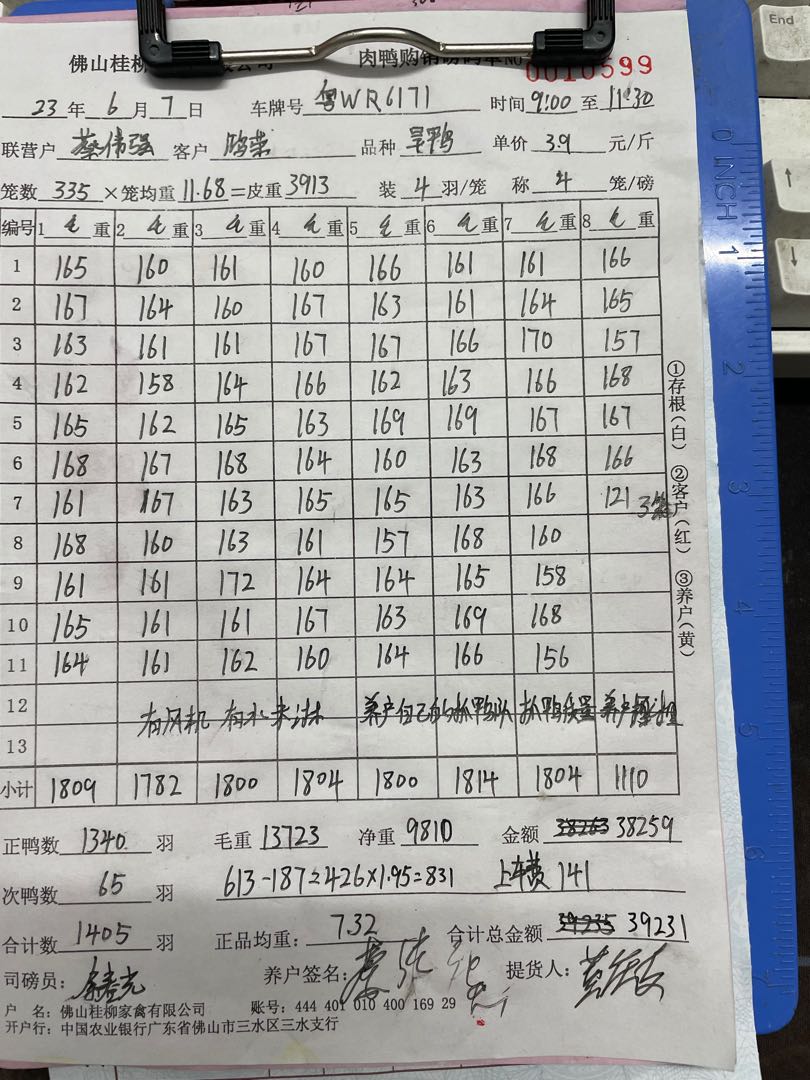 佛山桂柳 肉鸭购销磅码单 NO 0010599
23 年 6 月 7 日 车牌号 粤WR6171 时间 9:00 至 11:30
联营户 蔡伟强 客户 品种 旱鸭 单价 3.9 元/斤
笼数 335 ×笼均重 11.68 =皮重 3913 装 4 羽/笼 称 4 笼/磅
编号 1 毛 重 2 毛 重 3 毛 重 4 毛 重 5 毛 重 6 毛 重 7 毛 重 8 毛 重
1 165 160 161 160 166 161 161 166
2 167 164 160 167 163 161 164 165
3 163 161 161 167 167 166 170 157
4 162 158 164 166 162 163 166 168
5 165 162 165 163 169 169 167 167
6 168 167 168 164 160 163 168 166
7 161 167 163 165 165 163 166 121 3笼
8 168 160 163 161 157 168 160
9 161 161 172 164 164 165 158
10 165 161 161 167 163 169 168
11 164 161 162 160 164 166 156
12 有风机 有水 养户自己的抓鸭队 抓鸭 养户
13
小计 1809 1782 1800 1804 1800 1814 1804 1110
正鸭数 1340 羽 毛重 13723 净重 9810 金额 38263 38259
次鸭数 65 羽 613-187=426×1.95=831 上车费 141
合计数 1405 羽 正品均重: 7.32 合计总金额 39235 39231
司磅员: 养户签名: 提货人:
户 名: 佛山桂柳家禽有限公司 账号: 444 401 010 400 169 29
开户行: 中国农业银行广东省佛山市三水区三水支行
①存根(白) ②客户(红) ③养户(黄)
0 INCH 1 2 3 4 5 6
End